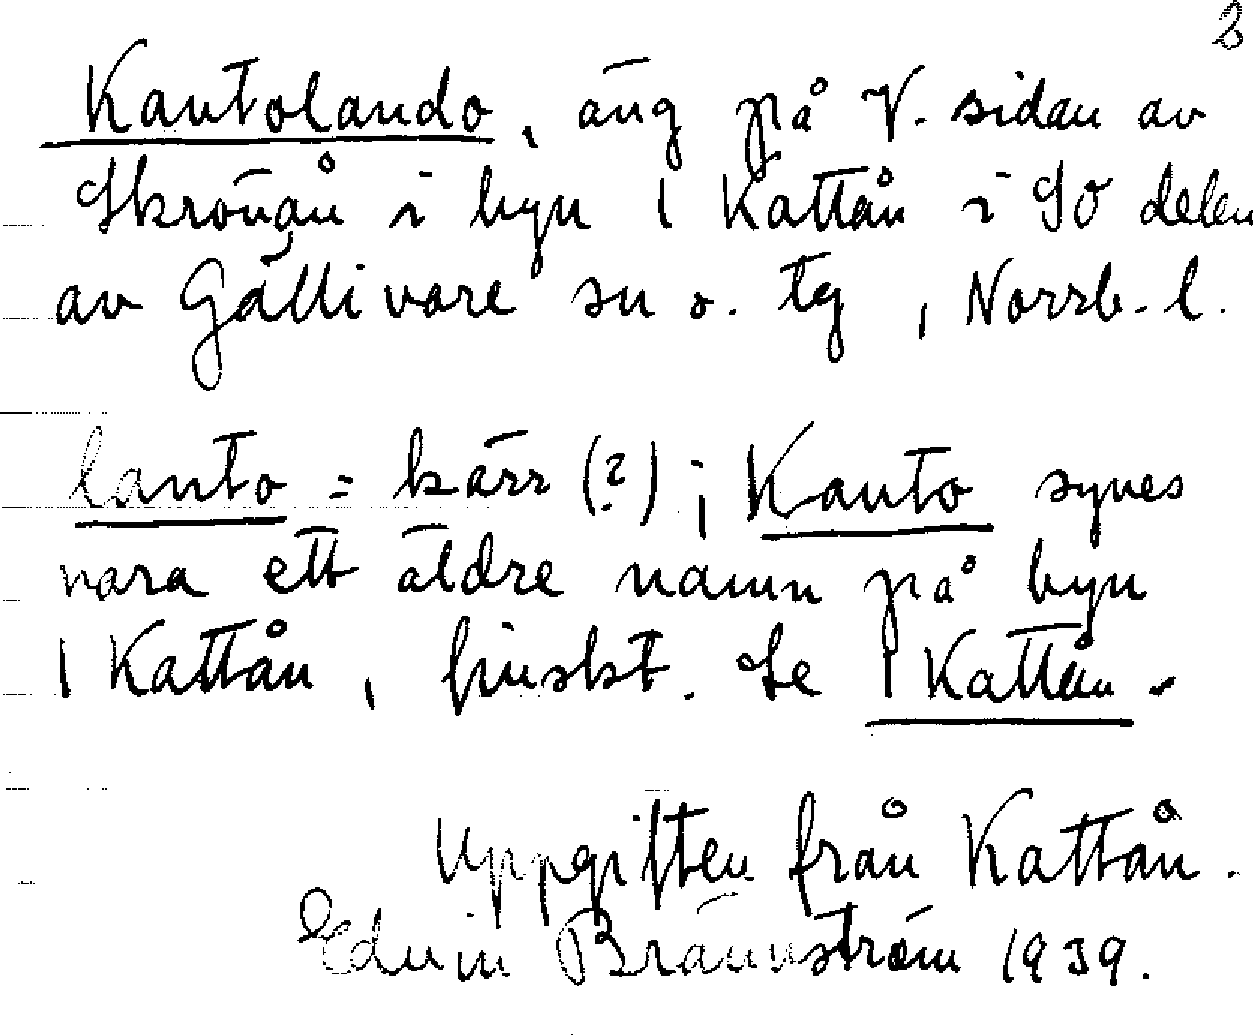 2
Kantolando, äng på V. sidan av
Skröuån i byn 1 Kattån i SO delen
av Gällivare sn o. tg, Norrb. l.
lanto = kärr (?); Kanto synes
vara ett äldre namn på byn
1 Kattån, finskt. Se 1 Kattån.
Uppgiften från Kattån.
Edvin Brännström 1939.